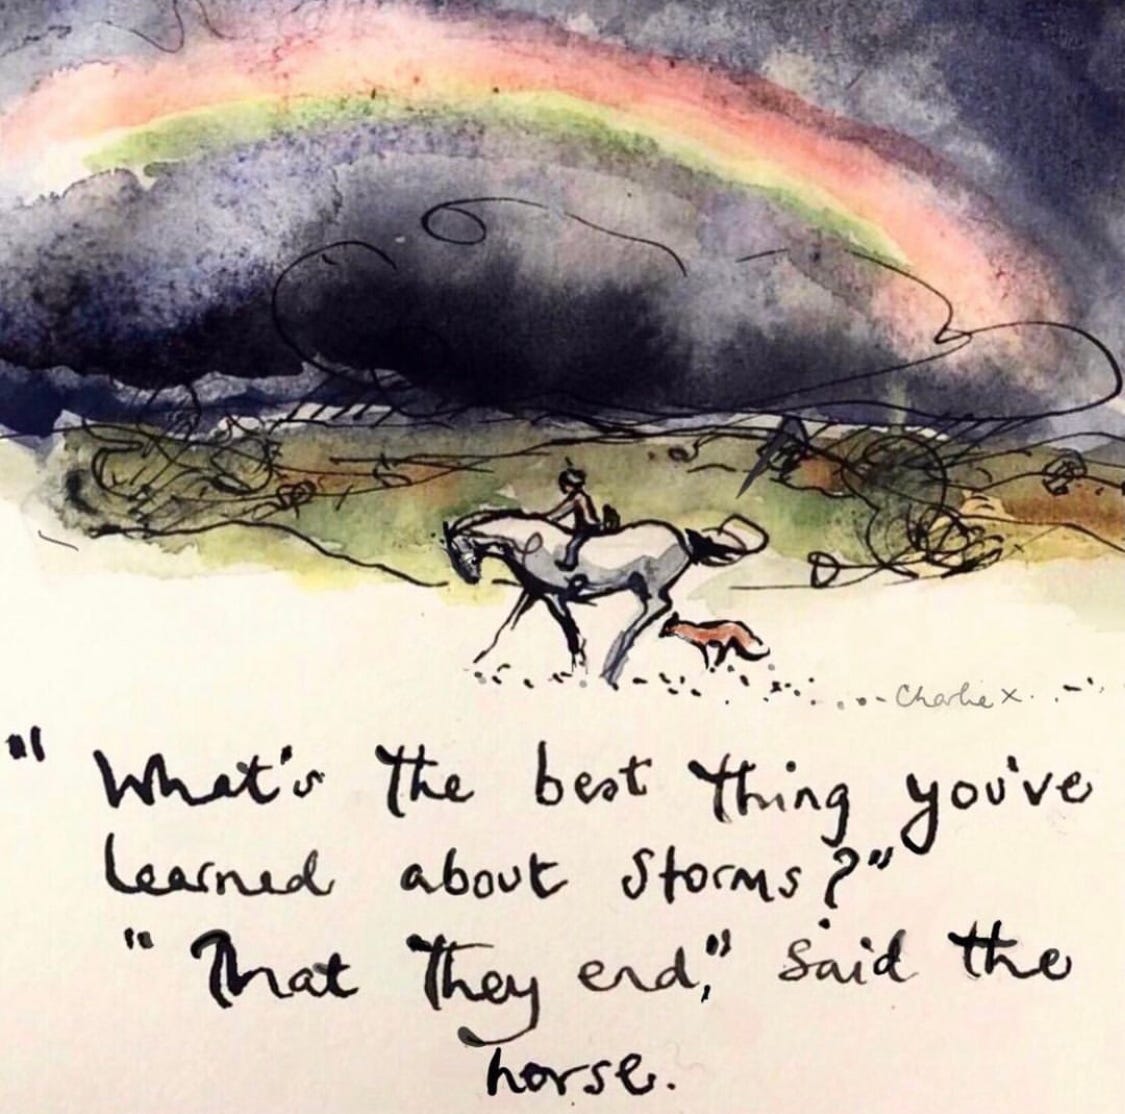 Charlie x.
"What's the best thing you've
learned about storms?"
"That they end," said the
horse.